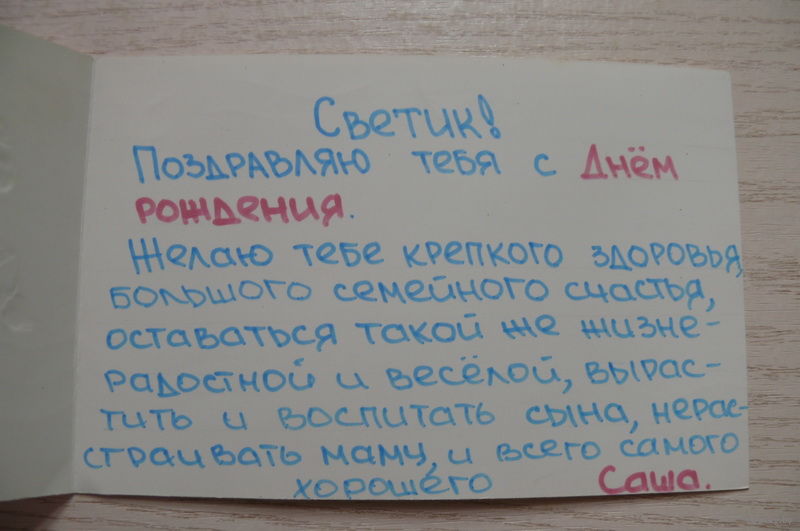 Светик!
Поздравляю тебя с Днём
рождения.
Желаю тебе крепкого здоровья,
большого семейного счастья,
оставаться такой же жизне-
радостной и весёлой, вырас-
тить и воспитать сына, нерас-
страивать маму, и всего самого
хорошего Саша.